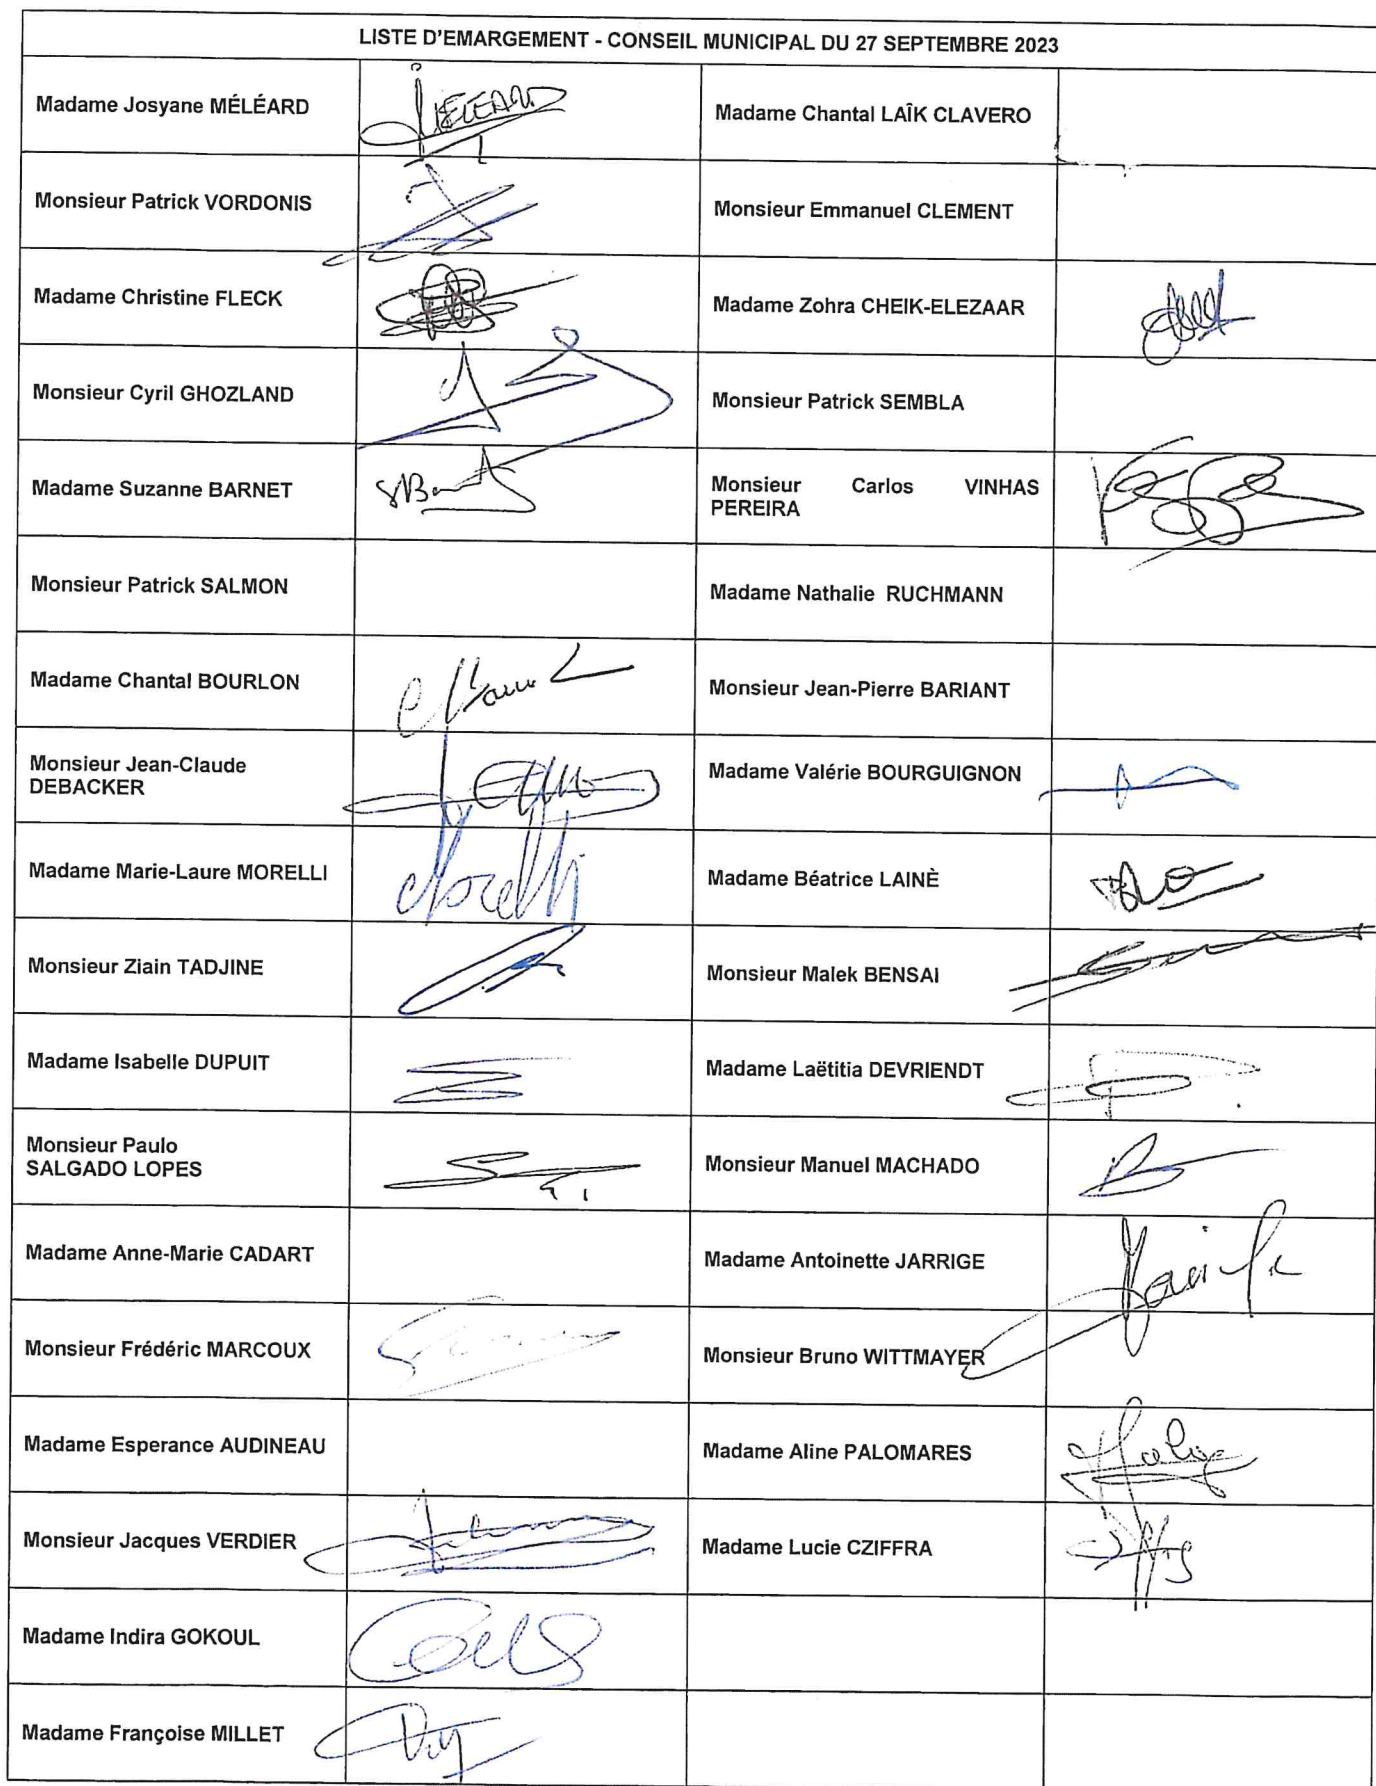 LISTE D'EMARGEMENT - CONSEIL MUNICIPAL DU 27 SEPTEMBRE 2023
Madame Josyane MÉLÉARD
Madame Chantal LAÎK CLAVERO
Monsieur Patrick VORDONIS
Monsieur Emmanuel CLEMENT
Madame Christine FLECK
Madame Zohra CHEIK-ELEZAAR
Monsieur Cyril GHOZLAND
Monsieur Patrick SEMBLA
Madame Suzanne BARNET
Monsieur Carlos VINHAS
PEREIRA
Monsieur Patrick SALMON
Madame Nathalie RUCHMANN
Madame Chantal BOURLON
Monsieur Jean-Pierre BARIANT
Monsieur Jean-Claude
DEBACKER
Madame Valérie BOURGUIGNON
Madame Marie-Laure MORELLI
Morelli
Madame Béatrice LAINÈ
Monsieur Ziain TADJINE
Monsieur Malek BENSAI
Madame Isabelle DUPUIT
Madame Laëtitia DEVRIENDT
Monsieur Paulo
SALGADO LOPES
Monsieur Manuel MACHADO
Madame Anne-Marie CADART
Madame Antoinette JARRIGE
Monsieur Frédéric MARCOUX
Monsieur Bruno WITTMAYER
Madame Esperance AUDINEAU
Madame Aline PALOMARES
Monsieur Jacques VERDIER
Madame Lucie CZIFFRA
Madame Indira GOKOUL
Madame Françoise MILLET